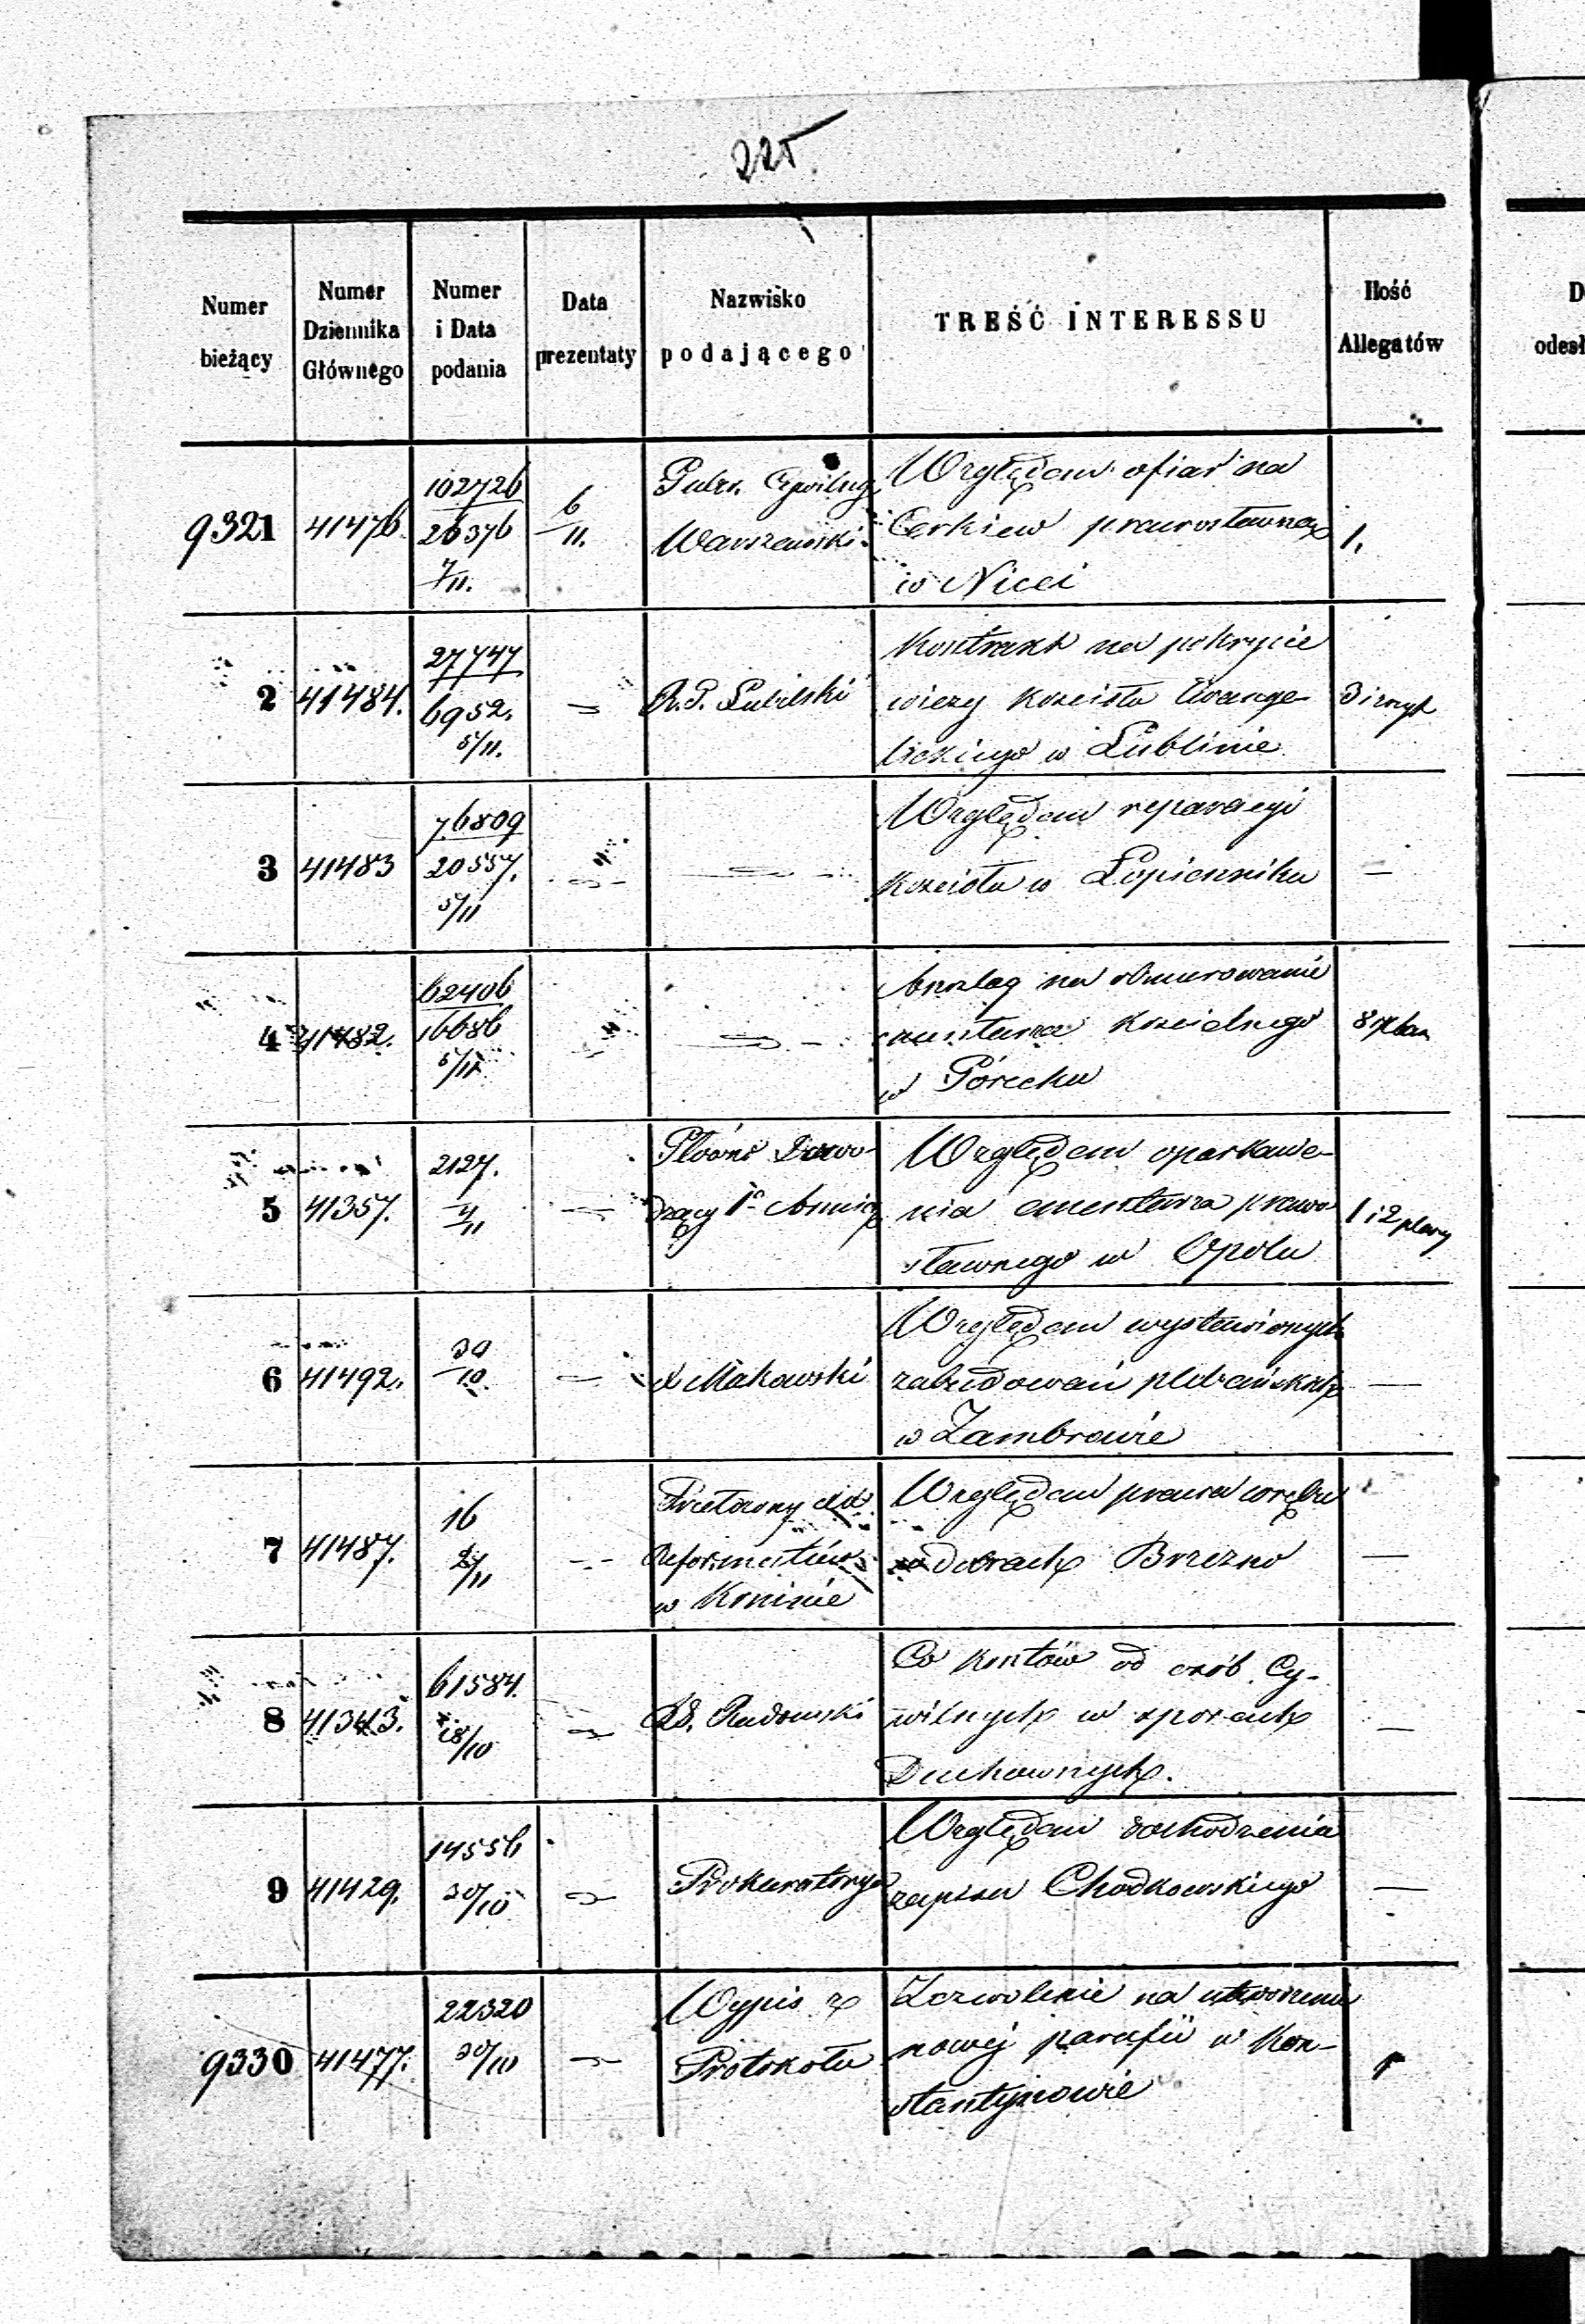 225
Numer bieżący
Numer Dziennika Głównego
Numer i Data podania
Data prezentaty
Nazwisko podającego
TREŚĆ INTERESSU
Ilość Allegatów
D
odesł
9321
41476.
102726
26376
7/11.
6
11.
Gubr. Cywilny
Warszawski.
Względem ofiar na
Cerkiew prawosławną
w Nicei
1.
2
41484.
27747
6952.
5/11.
R. G. Lubelski
Kontrakt na pokrycie
wieży kościoła Ewange-
lickiego w Lublinie
3
3
41483
76809
20557.
5/11
Względem reparacyi
kościoła w Łopienniku
—
4
41482.
62406
16686
5/11
Anszlag na obmurowanie
cmentarza kościelnego
w Górecku
8 plan
5
41357.
2127.
4
11
Główno Dowo-
dzący 1ą Armią
Względem oparkanie-
nia cmentarza prawo
sławnego w Opolu
1 i 2 plany
6
41492.
30
10.
X Makowski
Względem wystawionych
zabudowań plebańskich
w Zambrowie
—
7
41487.
16
2/11
Przełożony XX
Reformatów
w Koninie
Względem prawa wrębu
w dobrach Brzezno
—
8
41343.
61584.
28/10
R. G. Radomski
Co kosztów od osób Cy-
wilnych w sporach
Duchownych.
—
9
41429.
14556
30/10
Prokuratorya
Względem dochodzenia
zapisu Chodkowskiego
—
9330
41477.
22320
30/10
Wypis z
Protokołu
Zezwolenie na utworzenie
nowej parafii w Kon-
stantynowie
1